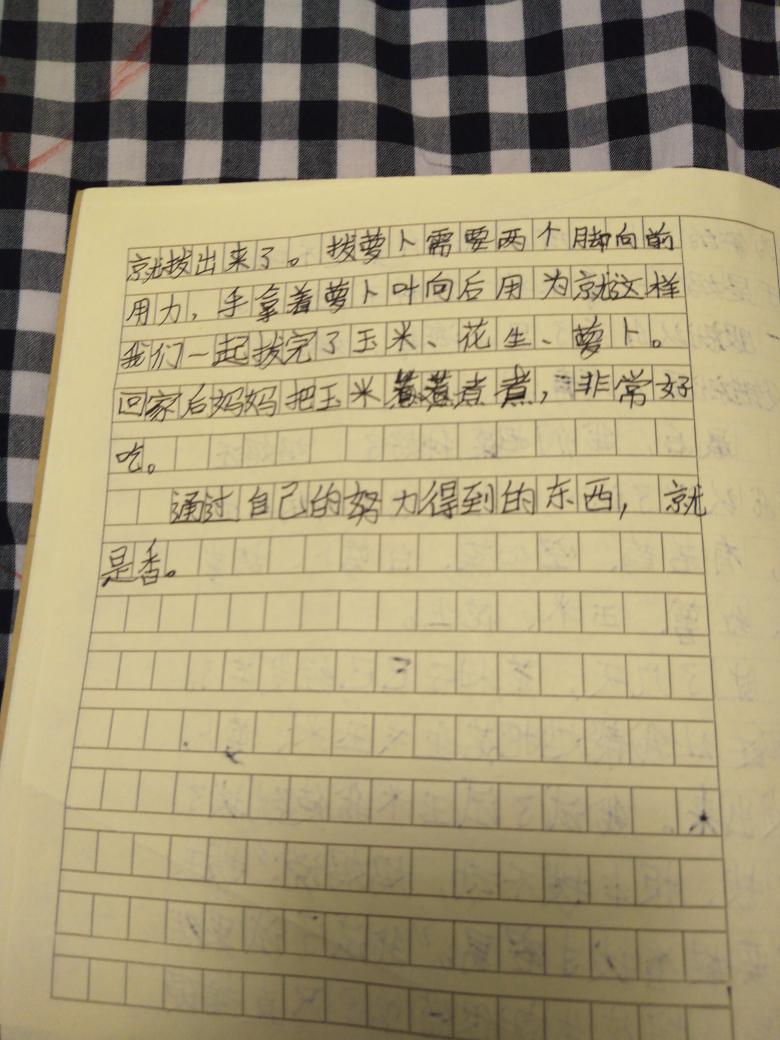 就拔出来了。拔萝卜需要两个脚向前
用力，手拿着萝卜叶向后用为就这样
我们一起拔完了玉米、花生、萝卜。
回家后妈妈把玉米煮煮，非常好
吃。
通过自己的努力得到的东西，就
是香。